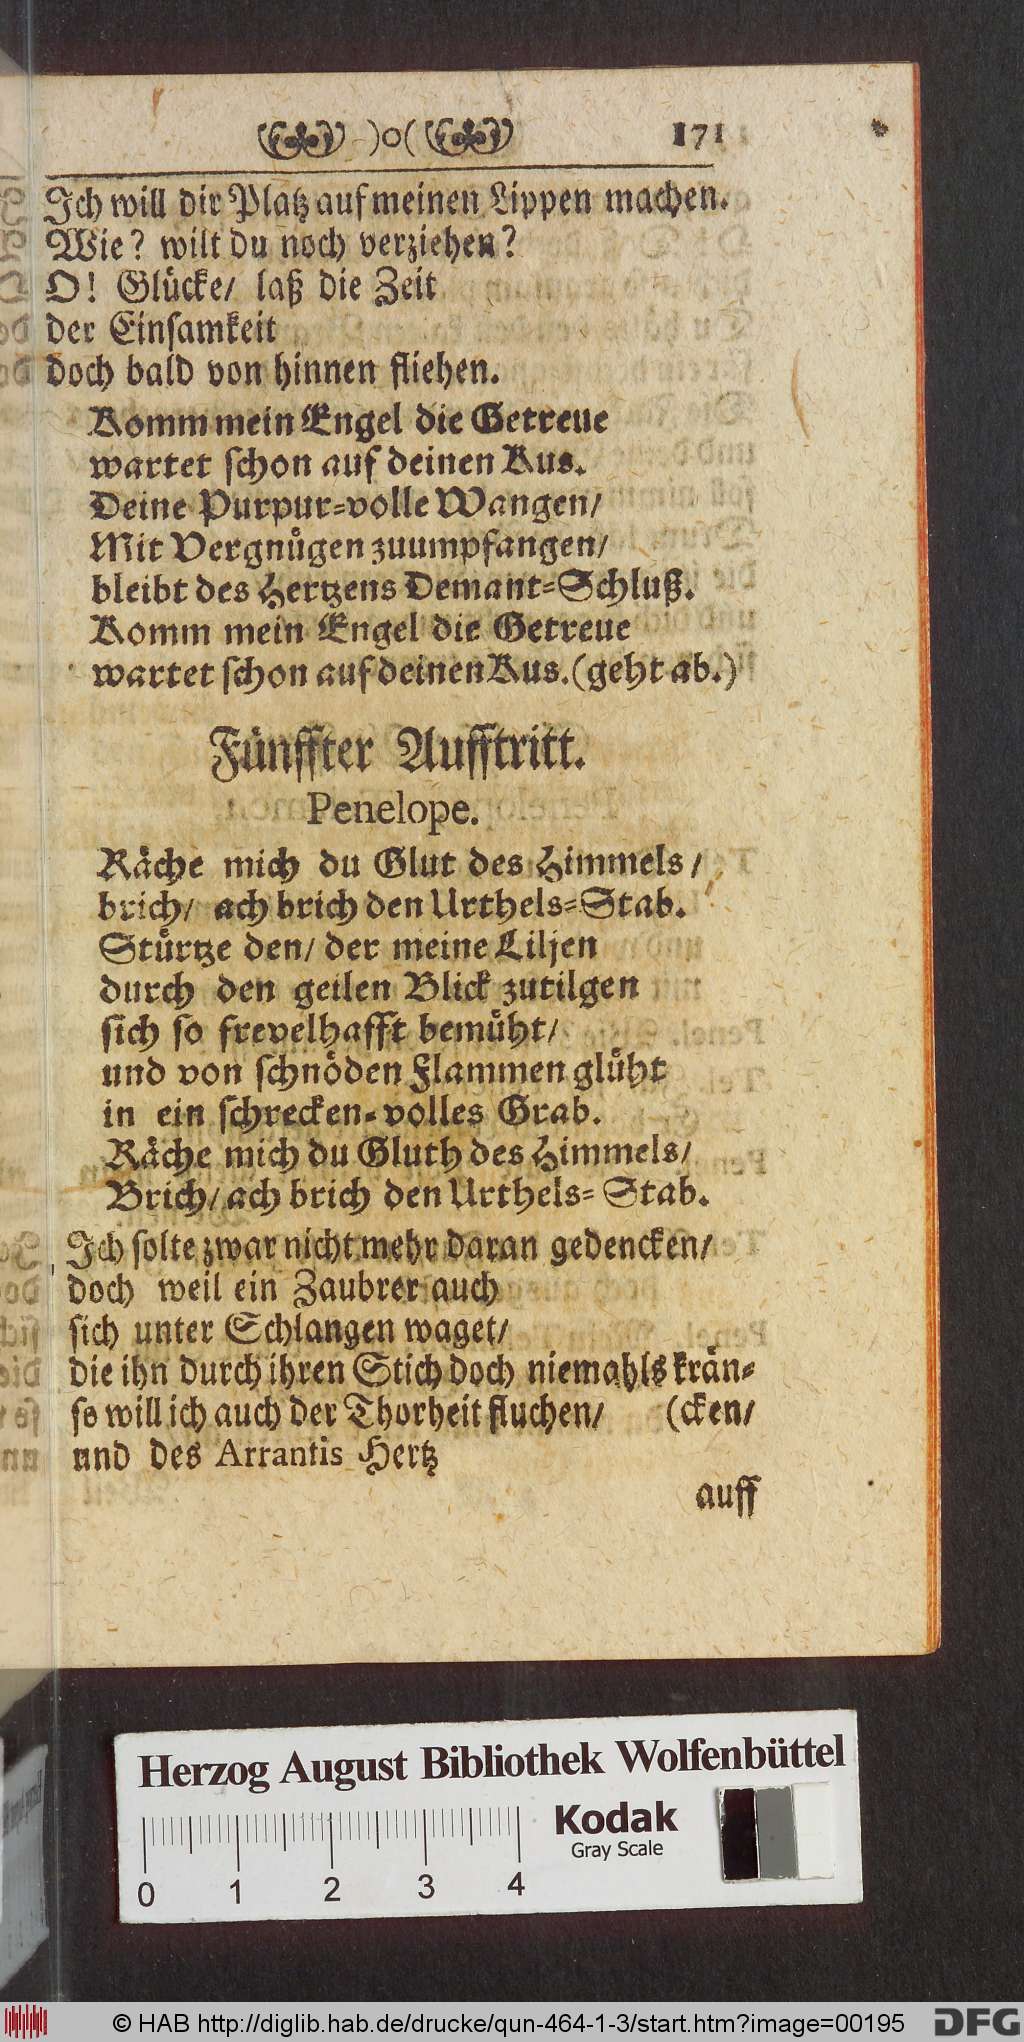 )o( 171
Ich will dir Platz auf meinen Lippen machen.
Wie? wilt du noch verziehen?
O! Glücke/ laß die Zeit
der Einsamkeit
doch bald von hinnen fliehen.
Komm mein Engel die Getreue
wartet schon auf deinen Kus.
Deine Purpur-volle Wangen/
Mit Vergnügen zuumpfangen/
bleibt des Hertzens Demant-Schluß.
Komm mein Engel die Getreue
wartet schon auf deinen Kus. (geht ab.)
Fünffter Aufftritt.
Penelope.
Räche mich du Glut des Himmels/
brich/ ach brich den Urthels-Stab.
Stürtze den/ der meine Liljen
durch den geilen Blick zutilgen
sich so frevelhafft bemüht/
und von schnöden Flammen glüht
in ein schrecken-volles Grab.
Räche mich du Gluth des Himmels/
Brich/ ach brich den Urthels-Stab.
Ich solte zwar nicht mehr daran gedencken/
doch weil ein Zaubrer auch
sich unter Schlangen waget/
die ihn durch ihren Stich doch niemahls krän-
so will ich auch der Thorheit fluchen/ (cken/
und des Arrantis Hertz
auff
Herzog August Bibliothek Wolfenbüttel
Kodak
Gray Scale
0 1 2 3 4
© HAB http://diglib.hab.de/drucke/qun-464-1-3/start.htm?image=00195 DFG